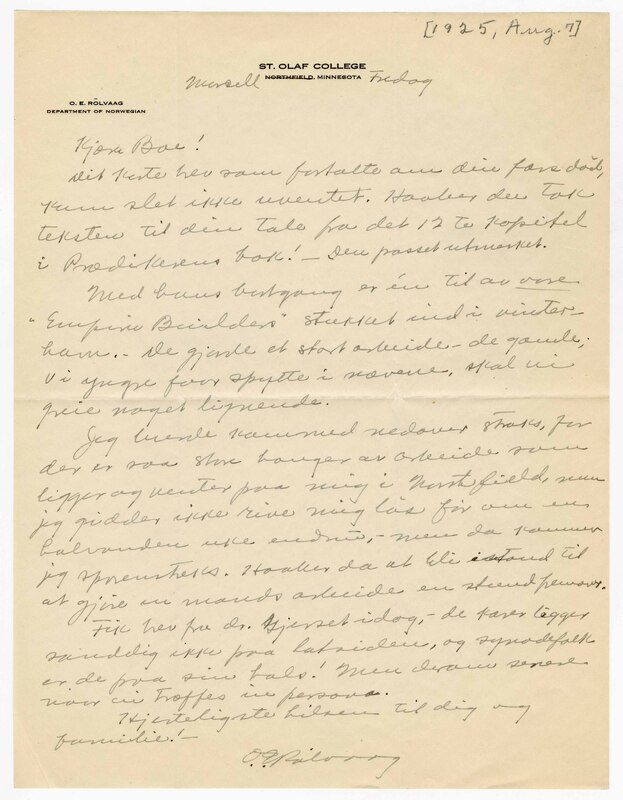 [1925, Aug. 7]
ST. OLAF COLLEGE
NORTHFIELD, MINNESOTA
Marcell Fredag
O. E. RÖLVAAG
DEPARTMENT OF NORWEGIAN
Kjære Boe!
Dit korte brev som fortalte om din fars död,
kom slet ikke uventet. Haaber du tok
teksten til din tale fra det 12te Kapitel
i Prædikerens bok! — Den passet utmerket.
Med hans bortgang er én til av vore
"Empire Builders" stukket ind i vinter-
havn. - De gjorde et stort arbeide - de gamle;
vi yngre faar spytte i nævene, skal vi
greie noget lignende.
Jeg burde kommed nedover straks, for
der er saa store bauger av arbeide som
ligger og venter paa mig i Northfield, men
jeg gidder ikke rive mig lös för om en
halvanden uke endnu, - men da kommer
jeg sporenstreks. Haaber da at bli istand til
at gjöre en mands arbeide en stund fremover.
Fik brev fra dr. Gjerset idag, - de karer ligger
sanddig ikke paa latsiden, og synodefolk
er de paa sin hals! Men derom senere
naar vi træffes in persona.
Hjerteligste hilsen til dig og
familie! -
O. E. Rölvaag